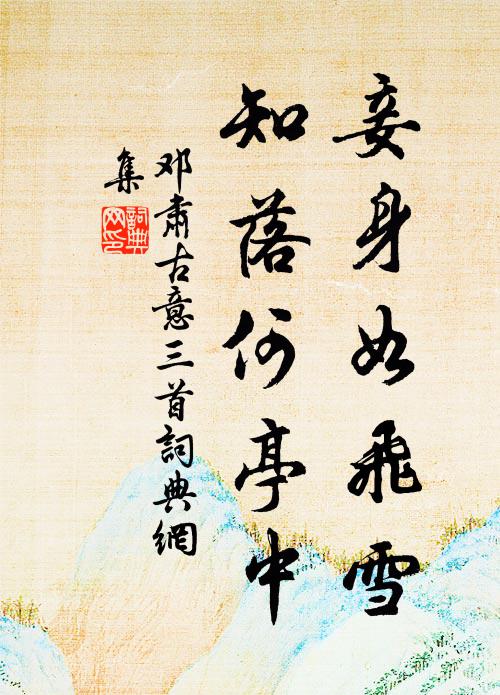 妾身如飛雪
知落何亭中
邓肅古意三首詞典網
集
詞典
网印